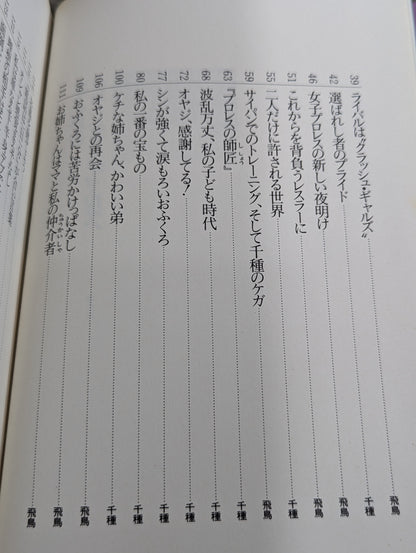 39 ライバルは〝クラッシュ・ギャルズ〟 飛鳥
42 選ばれし者のプライド 千種
46 女子プロレスの新しい夜明け 飛鳥
51 これからを背負うレスラーに 飛鳥
55 二人だけに許される世界 千種
59 サイパンでのトレーニング、そして千種のケガ 飛鳥
63 『プロレスの師匠』 千種
ししょう
68 波乱万丈、私の子ども時代 千種
72 オヤジ、感謝してる! 千種
77 シンが強くて涙もろいおふくろ 千種
80 私の一番の宝もの 千種
100 ケチな姉ちゃん、かわいい弟 千種
106 オヤジとの再会 千種
109 おふくろには苦労かけっぱなし 飛鳥
111 お姉ちゃんはママと私の仲介者 飛鳥
ちゅうかいしゃ